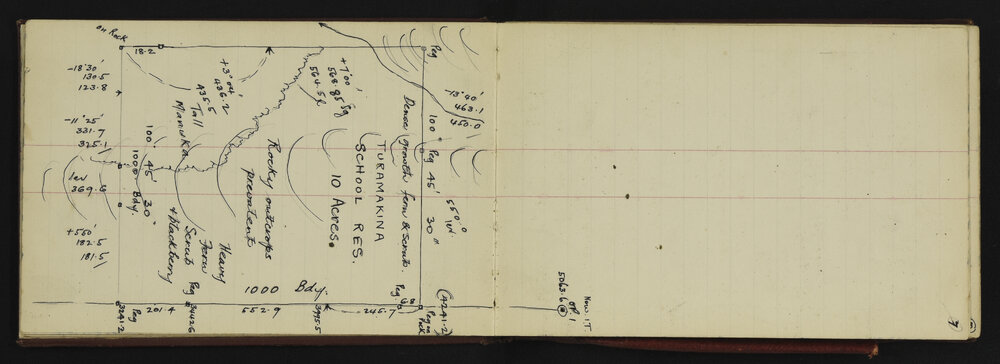 on Rock
18.2
-18°30'
130.5
123.8
-11°25'
331.7
325.1
lev
369.8
+5°50'
182.5
181.5
+3°04'
436.2
435.5
Tall
Manuka
100° 45' 30"
1000 Bdy.
Rocky outcrops
prevalent
Heavy
Fern
Scrub
+ blackberry
+7°00'
568.85
564.58
TURAMAKINA
SCHOOL RES.
10 Acres.
Dense growth fern & scrub.
Peg
100° 45' 30"
Peg
-13°40'
463.1
450.0
550.0
lev.
1000 Bdy.
Peg
3241.2
201.4
Peg
3442.6
552.9
3995.5
245.7
Peg
6.8
(4241.2)
Peg on
Rock
5063.6
OP.1
Now IT
7